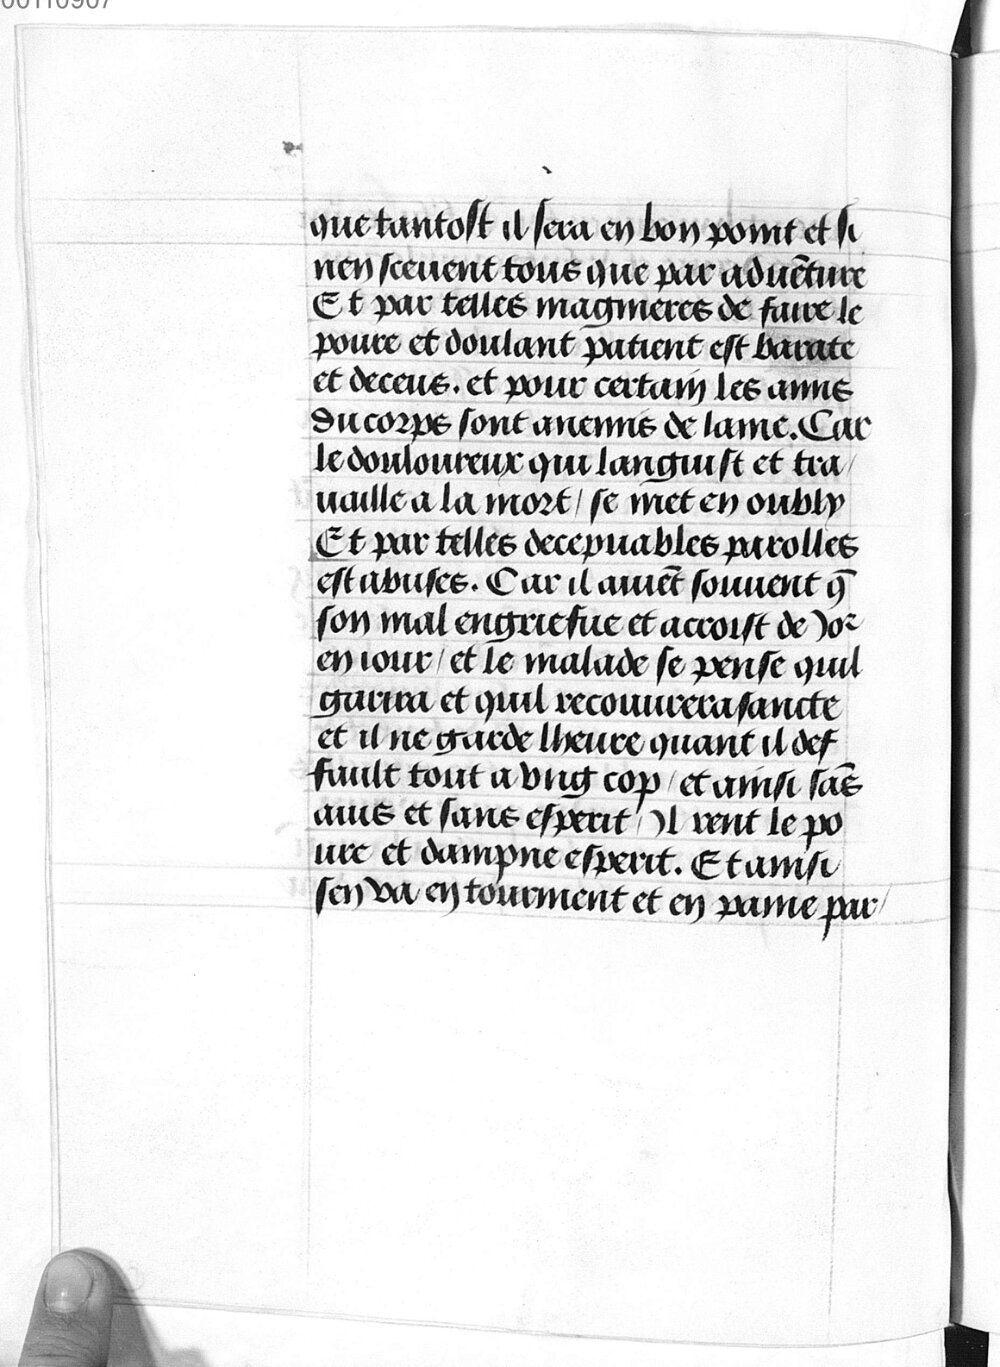 00110907
que tantost il sera en bon point et si
nen sceuent tous que par aduẽture
Et par telles magnieres de faire le
poure et doulant patient est barate
et deceus. et pour certain les amis
du corps sont anemis de lame. Car
le douloureux qui languist et tra/
uaille a la mort/ se met en oubly
Et par telles decepuables parolles
est abuses. Car il auiẽt souuent q̃
son mal engriefue et accroist de Jor
en iour/ et le malade se pense quil
garira et quil recouurera sancte
et il ne garde lheure quant il def
fault tout a vng cop/ et ainsi sãs
auis et sans esperit/ Il rent le po
ure et dampne esperit. Et ainsi
sen va en tourment et en paine par/